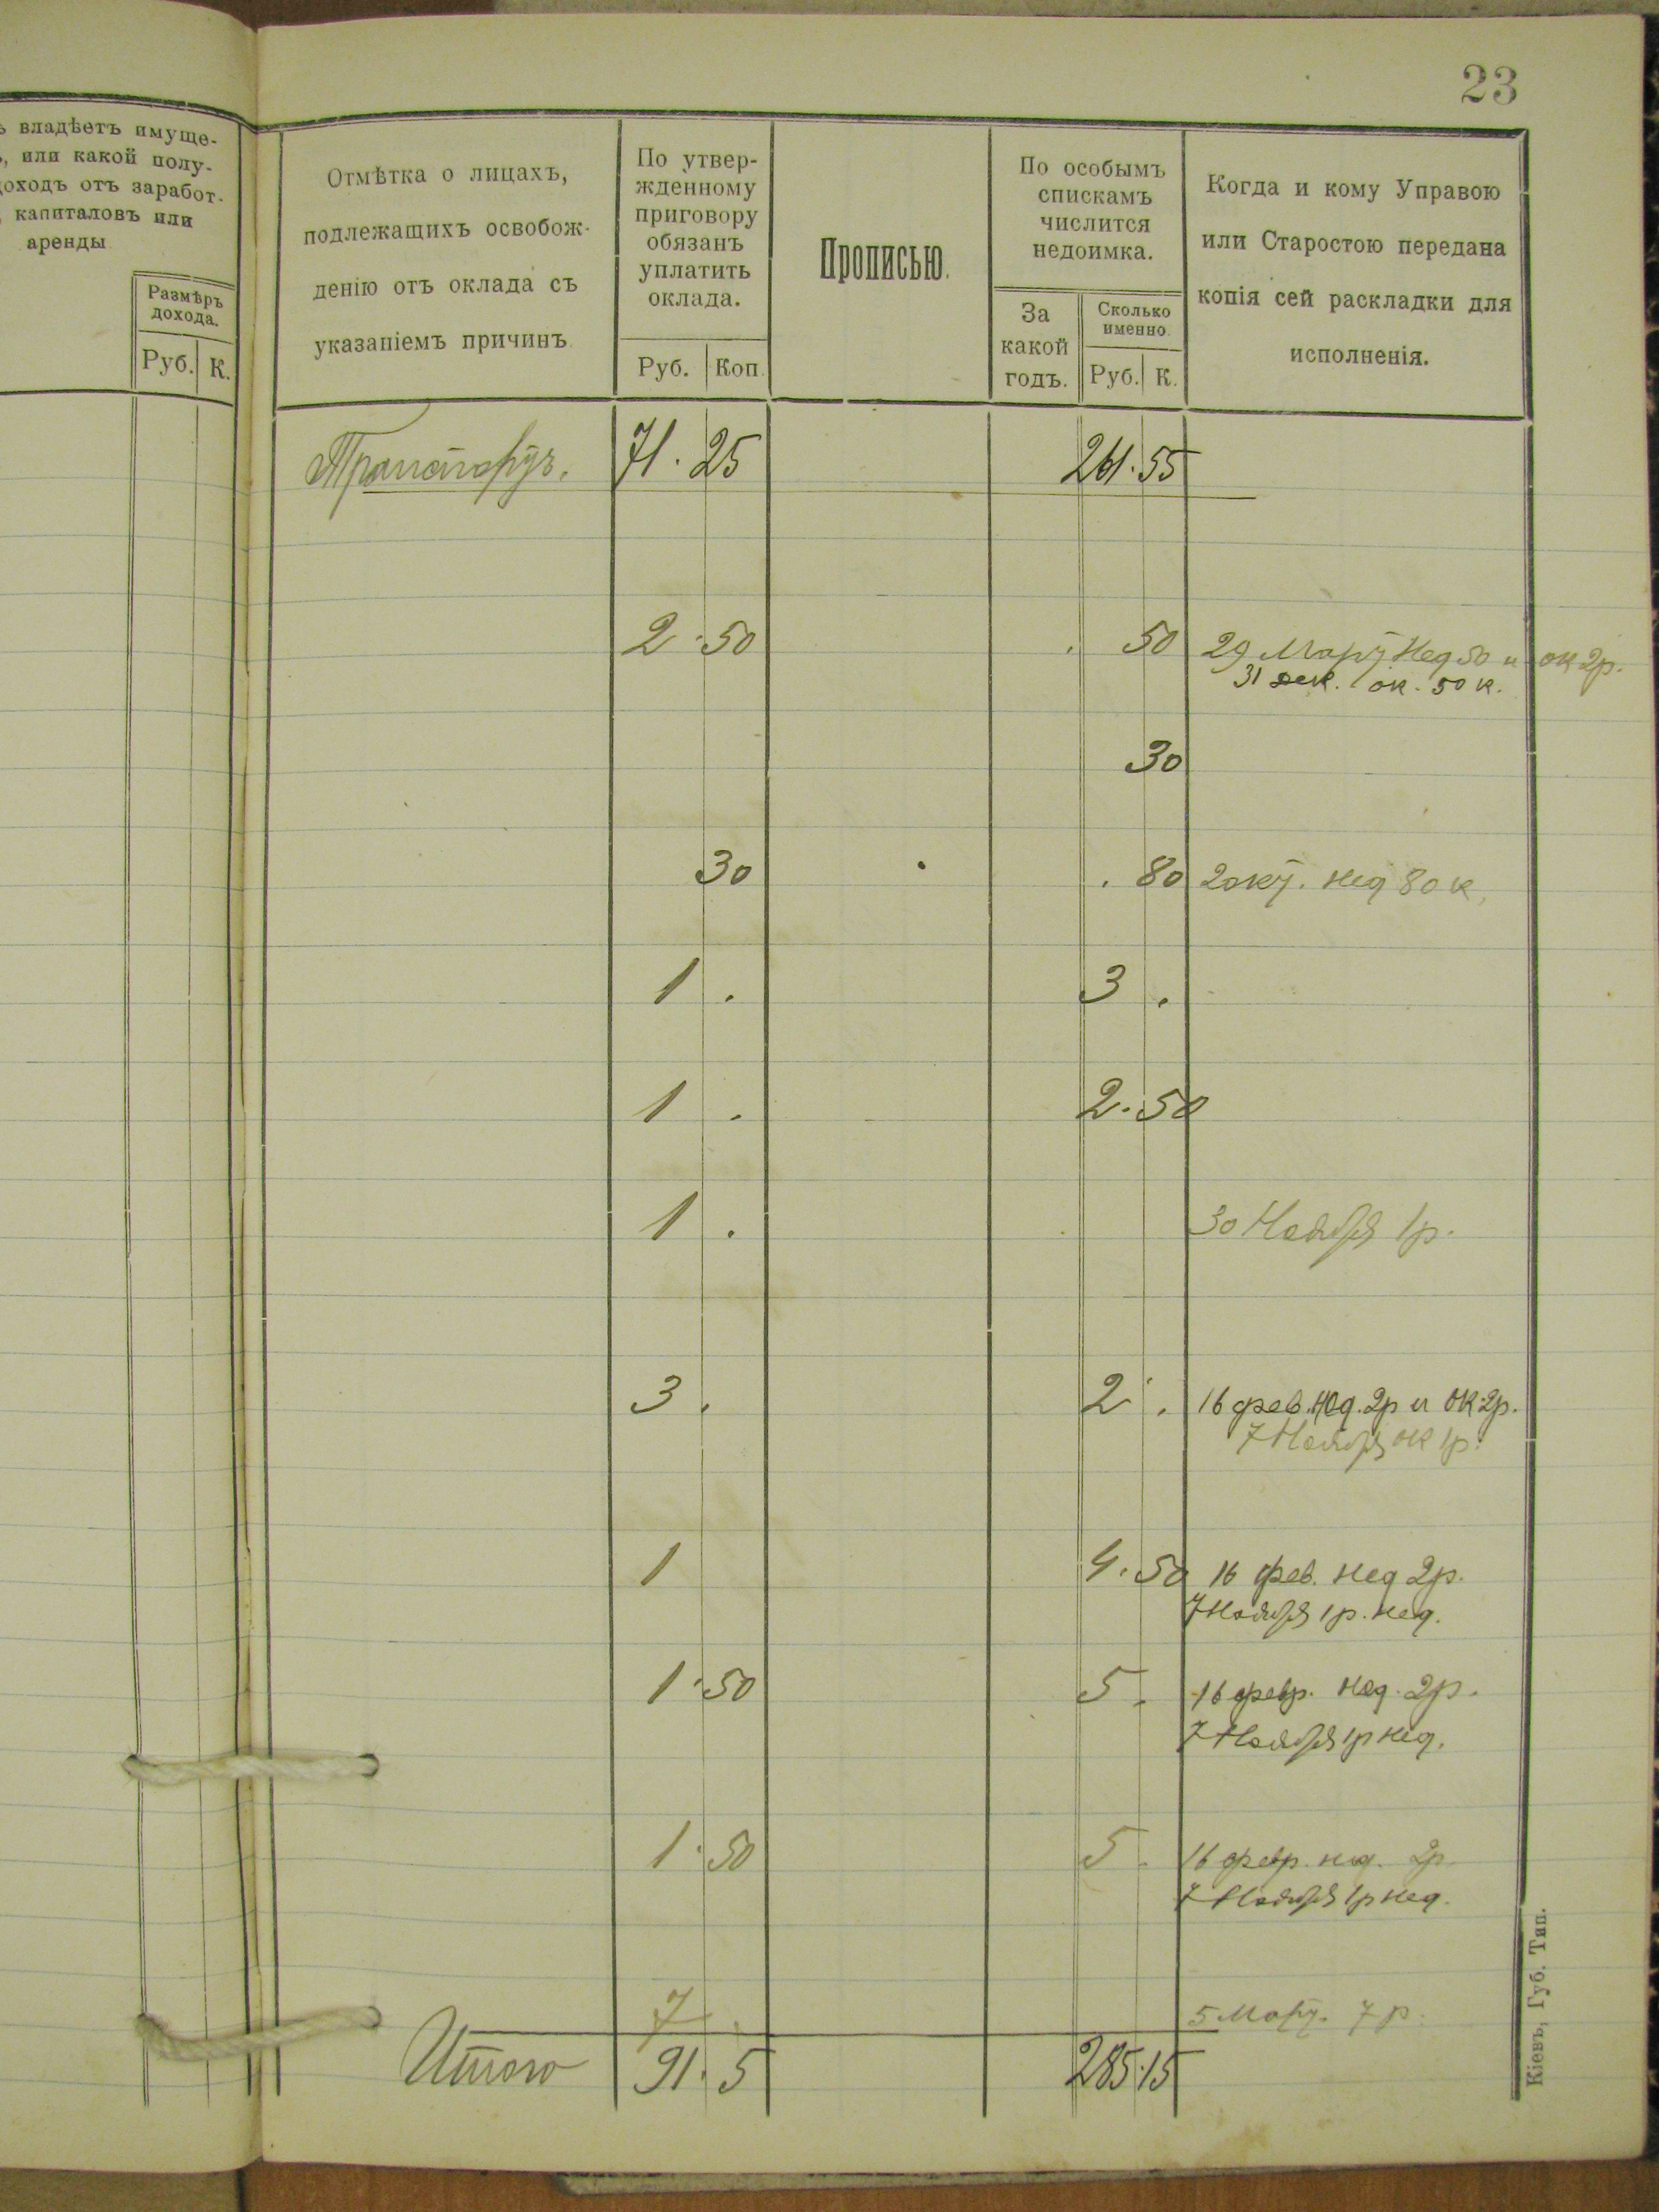 23
ъ владѣетъ имуще-
, или какой полу-
доходъ отъ заработ-
, капиталовъ или
аренды
Размѣръ
дохода.
Руб. К.
Отмѣтка о лицахъ,
подлежащихъ освобож-
денію отъ оклада съ
указаніемъ причинъ
По утвер-
жденному
приговору
обязанъ
уплатить
оклада.
Руб. Коп.
Прописью.
По особымъ
спискамъ
числится
недоимка.
За
какой
годъ.
Сколько
именно.
Руб. К.
Когда и кому Управою
или Старостою передана
копія сей раскладки для
исполненія.
71 . 25 261 . 55
2 . 50 . 50 29 Март Нед 50 и ок 2р.
31 дек. ок. 50 к.
30
30 . 80 2 окт. нед 80 к.
1 . 3 .
1 . 2 . 50
1 . 30 Ноября 1р.
3 . 2 . 16 фев. нед. 2р и ок 2р.
7 Ноября ок 1р.
1 4 . 50 16 фев. нед 2р.
7 Ноября 1р. нед.
1 . 50 5 . 16 февр. нед. 2р.
7 Ноября 1р нед.
1 . 50 5 . 16 февр. нед. 2р
7 Ноября 1р нед.
7 . 5 Март. 7 р.
Итого 91 . 5 285 . 15
Кіевъ, Губ. Тип.